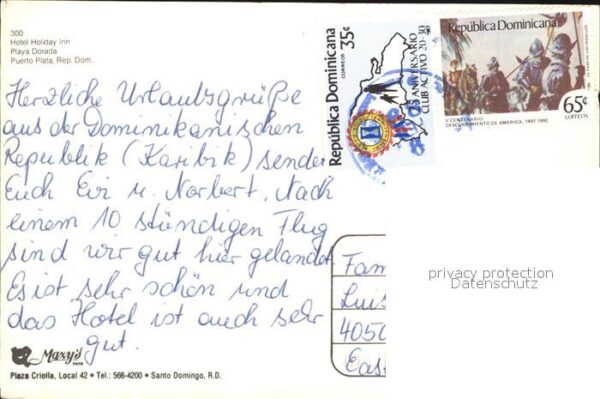 300
Hotel Holiday Inn
Playa Dorada
Puerto Plata, Rep. Dom.
Herzliche Urlaubsgrüße
aus der Dominikanischen
Republik (Karibik) senden
Euch Evi u. Norbert. Nach
einem 10 stündigen Flug
sind wir gut hier gelandet.
Es ist sehr schön und
das Hotel ist auch sehr
gut.
Maxy's
Plaza Criolla, Local 42 • Tel.: 566-4200 • Santo Domingo, R.D.
República Dominicana
CORREOS 35¢
25 ANIVERSARIO
CLUB ACTIVO 20-30
República Dominicana
65¢
CORREOS
V CENTENARIO
DESCUBRIMIENTO DE AMERICA, 1492 1992
Fam
Luis
4050
privacy protection
Datenschutz